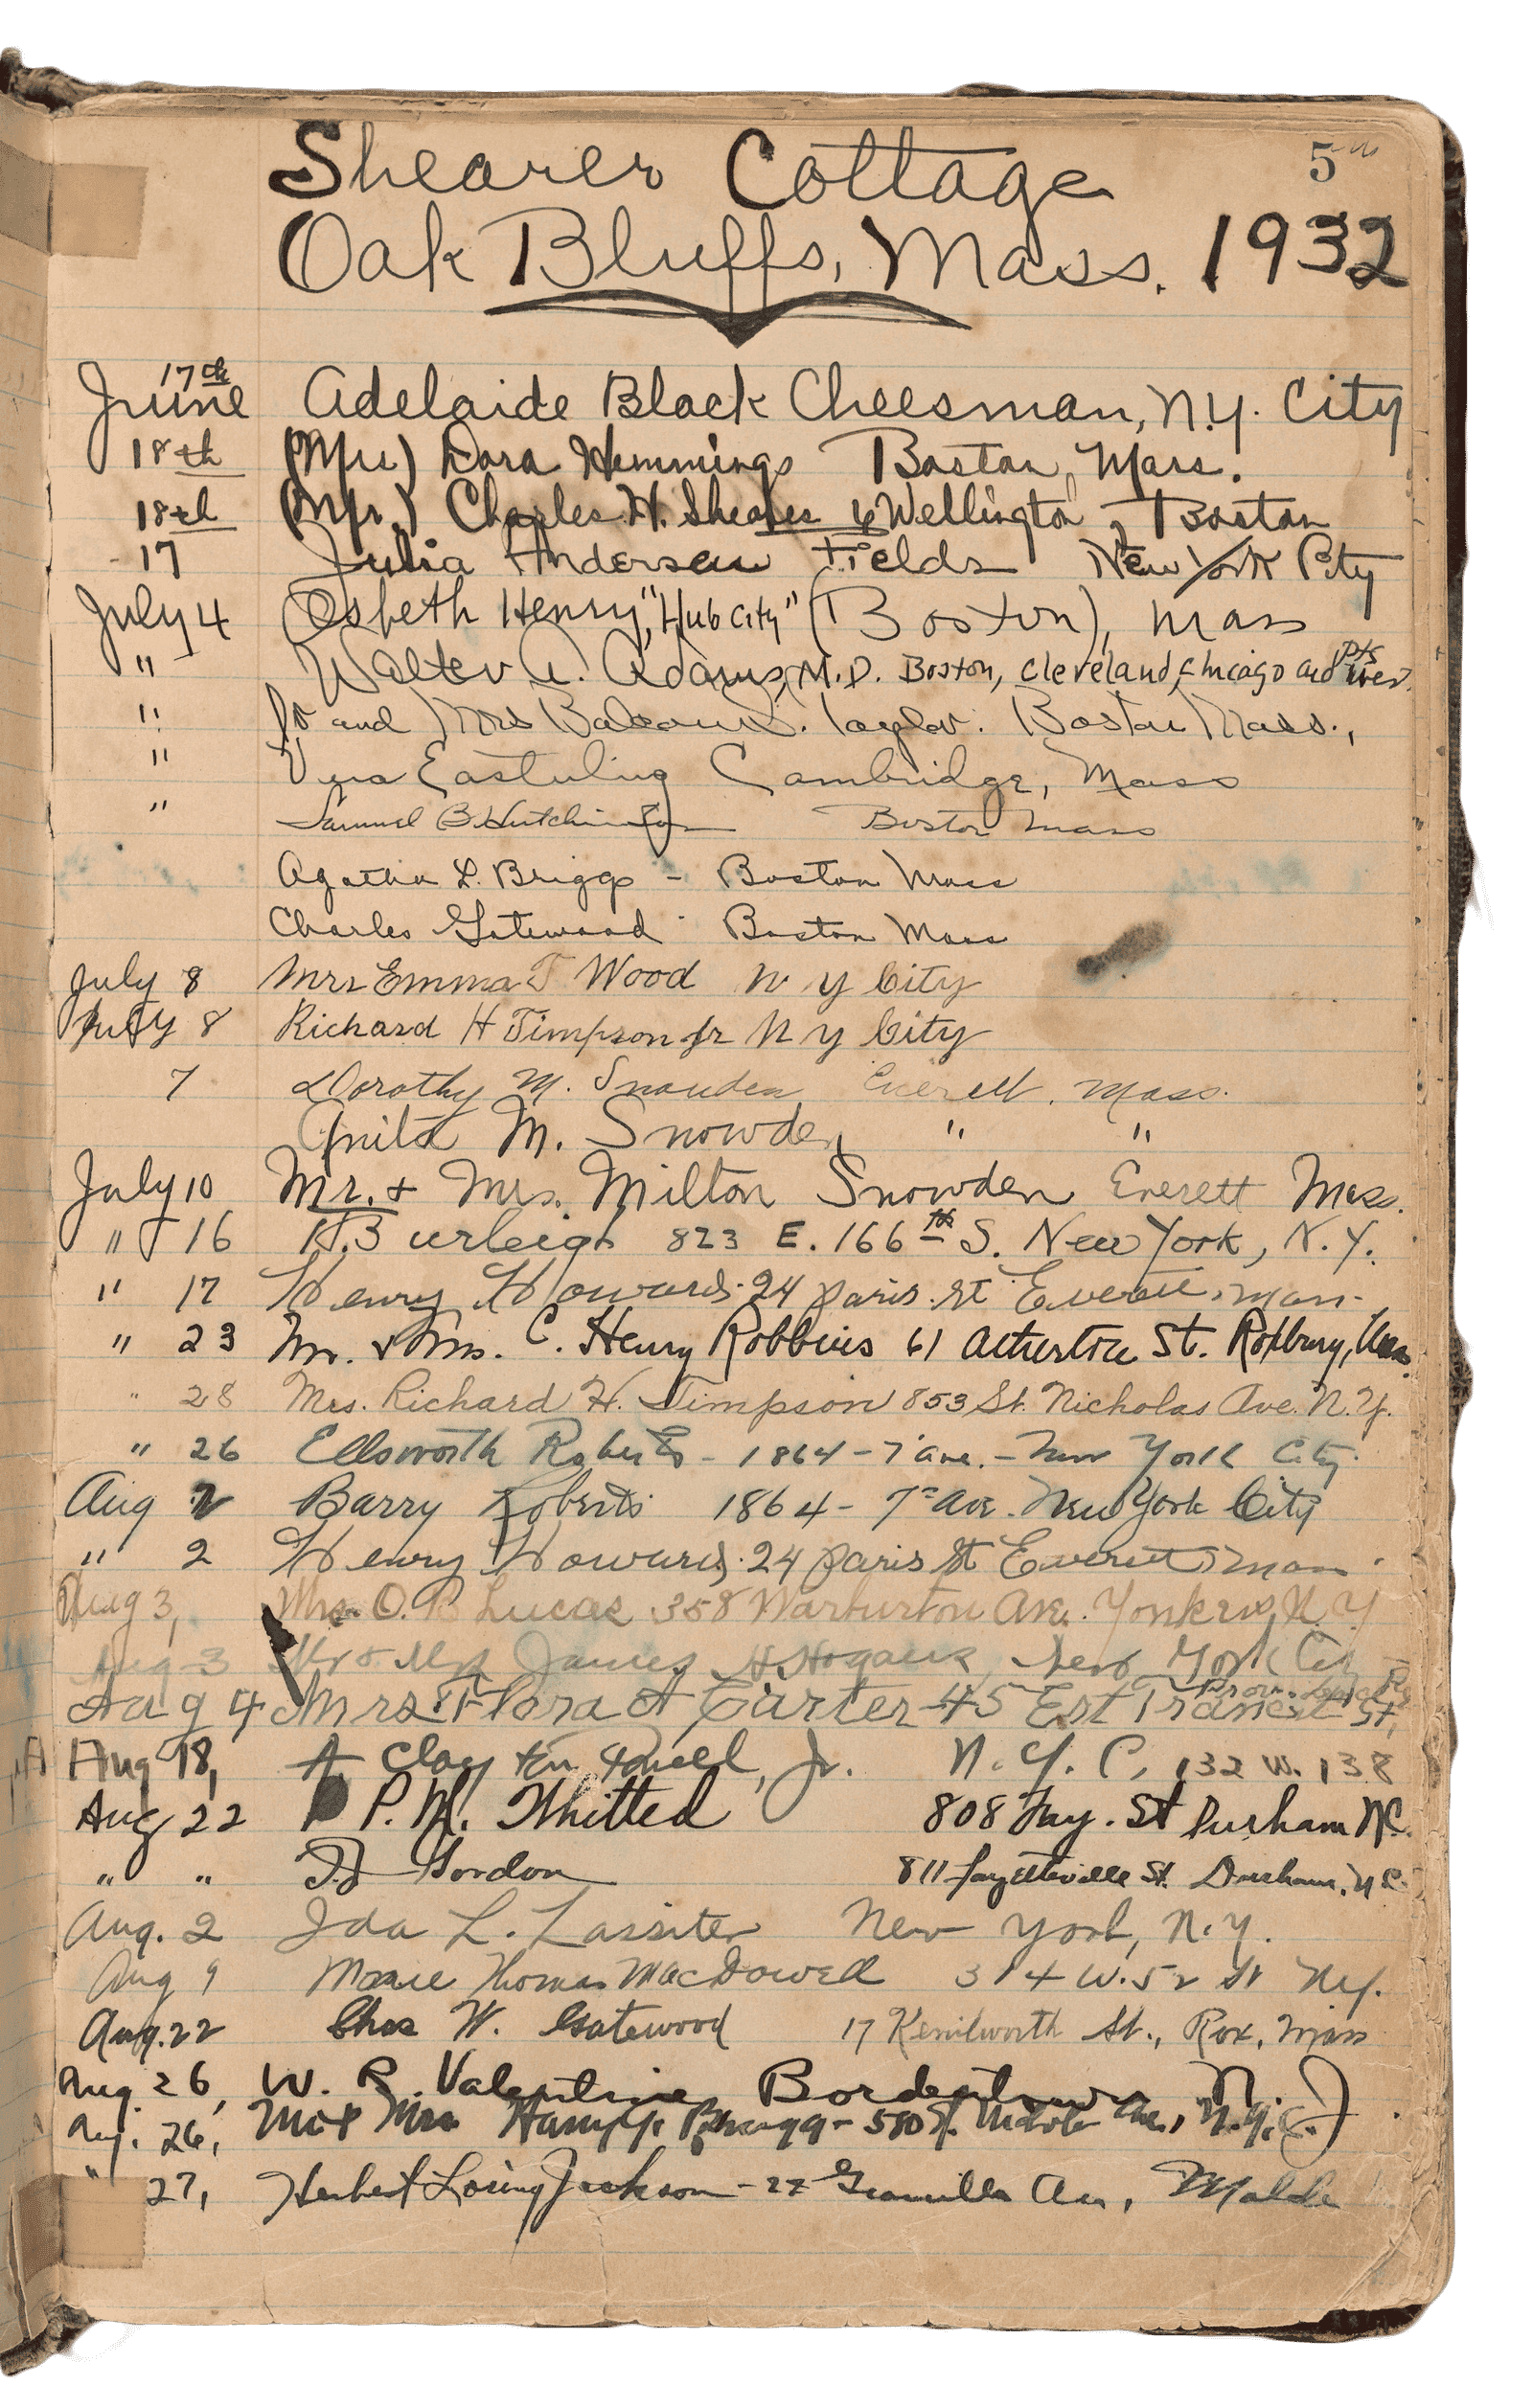 5
Shearer Cottage
Oak Bluffs, Mass. 1932
17th
June Adelaide Black Cheesman, N.Y. City
18th (Mrs) Dora Hemmings Boston, Mass.
18th (Mr.) Charles H. Shearer 6 Wellington, Boston
17 Julia Anderson Fields New York City
July 4 Osbeth Henry, "Hub City" (Boston), Mass
" Walter A. Adams, M.D. Boston, Cleveland, Chicago and pts
" and Mrs Taylor. Boston Mass.,
" Cambridge, Mass
" Samuel B. Hutchinson Boston Mass
Agatha L. Briggs - Boston Mass
Charles Gatewood Boston Mass
July 8 Mrs Emma T Wood N Y City
July 8 Richard H Timpson Jr N Y City
7 Dorothy M. Snowden Everett. Mass.
Anita M. Snowden " "
July 10 Mr. + Mrs. Milton Snowden Everett Mass.
" 16 H.Burleigh 823 E. 166th S. New York, N.Y.
" 17 Henry Howard. 24 Paris. St Everett, Mass.
" 23 Mr. & Mrs. C. Henry Robbins 61 Atherton St. Roxbury, Mass.
" 28 Mrs. Richard H. Timpson 853 St. Nicholas Ave. N.Y.
" 26 Ellsworth Roberts - 1864 - 7 ave. - New York City
Aug 2 Barry Roberts 1864 - 7th Ave. New York City
" 2 Henry Howard. 24 Paris St Everett, Mass
Aug 3, Mrs. O. B Lucas 358 Warburton Ave. Yonkers, N.Y
Aug 3 Mr & Mrs James H Hogans, New York City
Aug 4 Mrs. Flora A Carter 45 Est Transit St,
Aug 18, A Clayton Powell, Jr. N.Y.C, 132 W. 138
Aug 22 P.M. Whitted 808 Fay. St Durham N.C.
" " Gordon 811 Fayetteville St. Durham, N.C.
Aug. 2 Ida L. Lassiter New York, N.Y.
Aug 9 Marie Thomas MacDowell 314 W. 52 St N.Y.
Aug. 22 Chas W. Gatewood 17 Kenilworth St., Rox, Mass
Aug. 26, W. R. Valentine, Bordentown, N.J
Aug. 26, Mr & Mrs Bragg - 580 St. Nicholas Ave., N.Y.C.
" 27, Herbert Loring Jackson - 27 Granville Ave, Malde